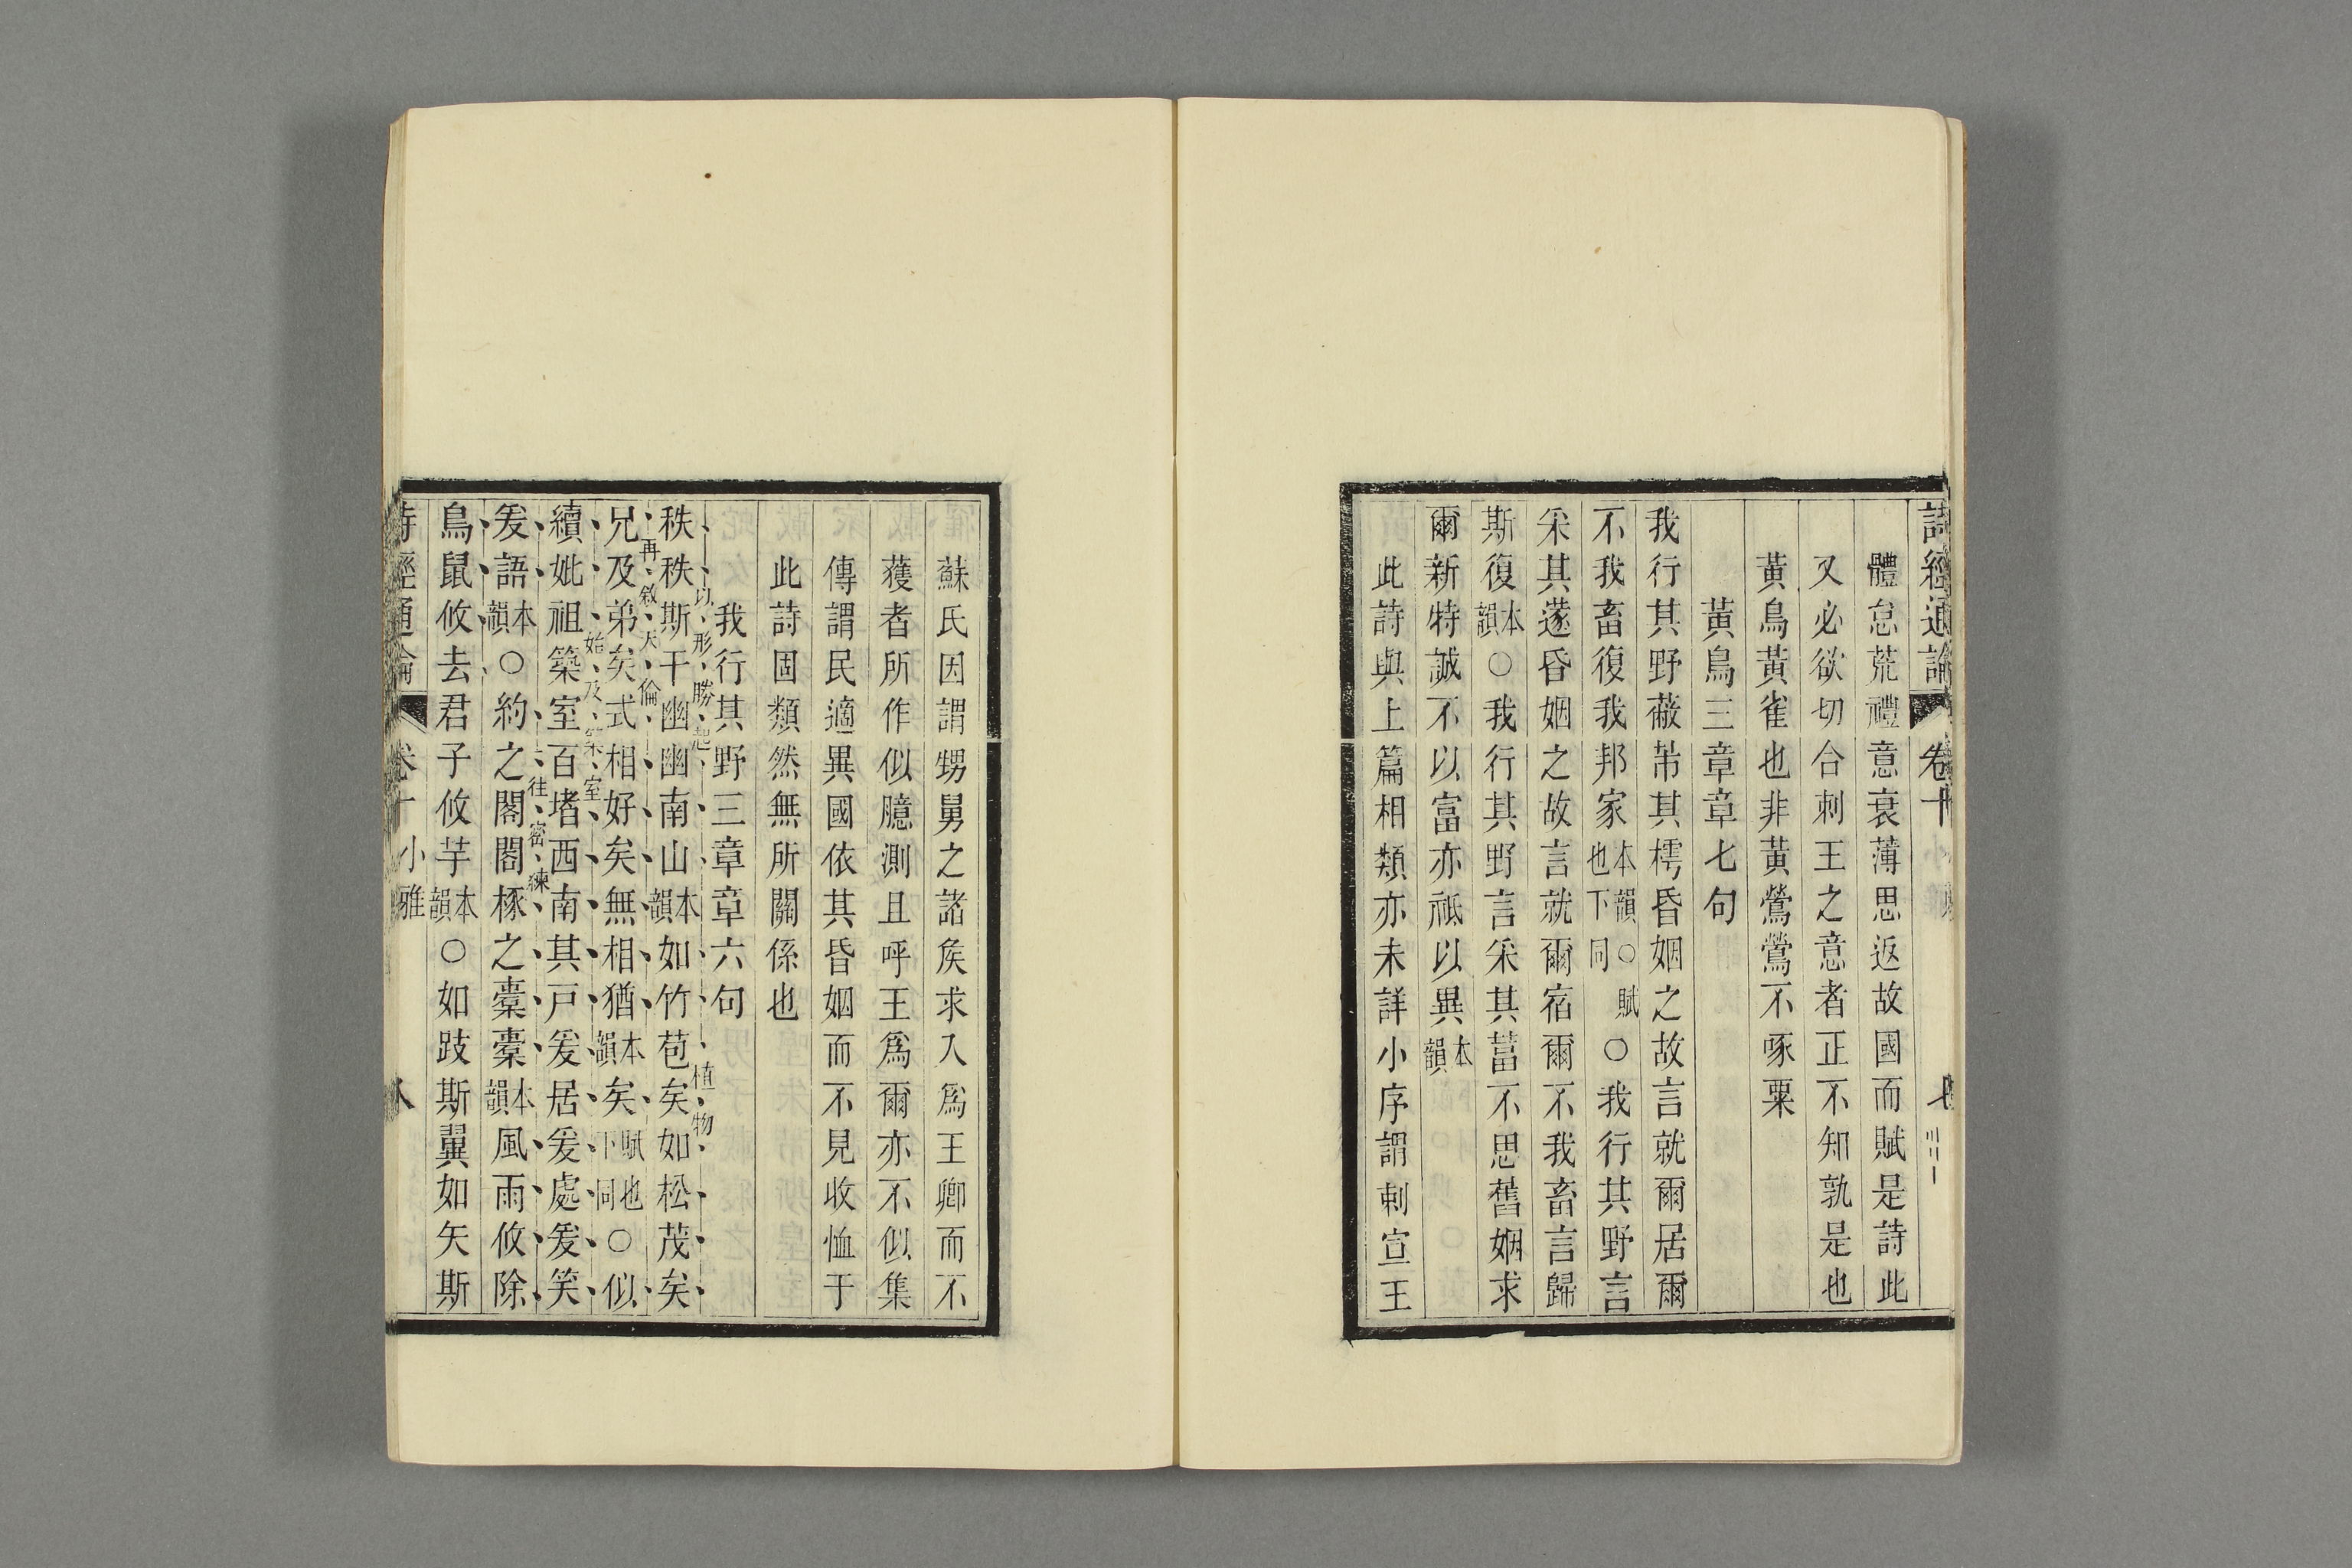 詩經通論 卷十
體怠荒禮意衰薄思返故國而賦是詩此
又必欲切合刺王之意者正不知孰是也
黃鳥黃雀也非黃鶯鶯不啄粟
黃鳥三章章七句
我行其野蔽芾其樗昏姻之故言就爾居爾
不我畜復我邦家本韻○賦也下同○我行其野言
采其蓫昏姻之故言就爾宿爾不我畜言歸
斯復本韻○我行其野言采其葍不思舊姻求
爾新特誠不以富亦祗以異本韻
此詩與上篇相類亦未詳小序謂刺宣王
蘇氏因謂甥舅之諸矦求入爲王卿而不
獲者所作似臆測且呼王爲爾亦不似集
傳謂民適異國依其昏姻而不見收恤于
此詩固類然無所關係也
我行其野三章章六句
以形勝起 植物
秩秩斯干幽幽南山本韻如竹苞矣如松茂矣
再敘天倫
兄及弟矣式相好矣無相猶本韻矣賦也下同○似
始及築室
續妣祖築室百堵西南其戸爰居爰處爰笑
往密練
爰語本韻○約之閣閣椓之橐橐本韻風雨攸除
鳥鼠攸去君子攸芋本韻○如跂斯翼如矢斯
詩經通論 卷十 小雅